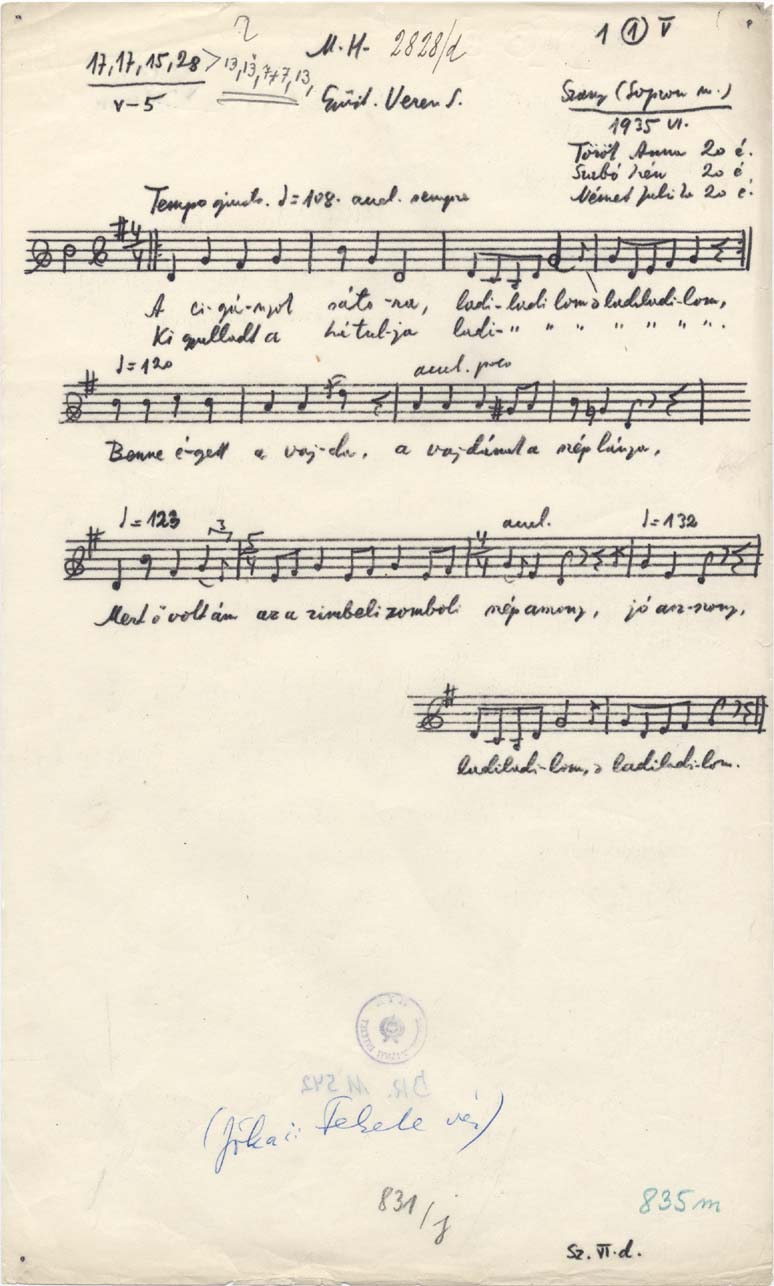 2
M.H. 2828/d
1 ① V
17, 17, 15, 28 > 13, 13, 7+7, 13,
V-5
Gyűjt. Veress S.
Szany (Sopron m.)
1935 VI.
Török Anna 20 é.
Szabó Irén 20 é
Német Juli 20 é.
Tempo giusto. ♩=108. accel. sempre
4/4
A ci-gá-nyok sáto-ra, ladi-ladi lom ladiladi-lom,
Ki gyulladt a hátul-ja ladi- " " " " " " ".
♩=120
accel. poco
Benne é-gett a vaj-da, a vajdának a szép lánya,
♩=123
3
5/4
4/4
accel.
♩=132
Mert ő volt ám az a zimbeli zomboli szép asszony, jó asz-szony,
ladiladi-lom, ladiladi-lom.
DR. M 542
(Jókai: Fekete vér)
831/j
835 m
Sz. VI. d.